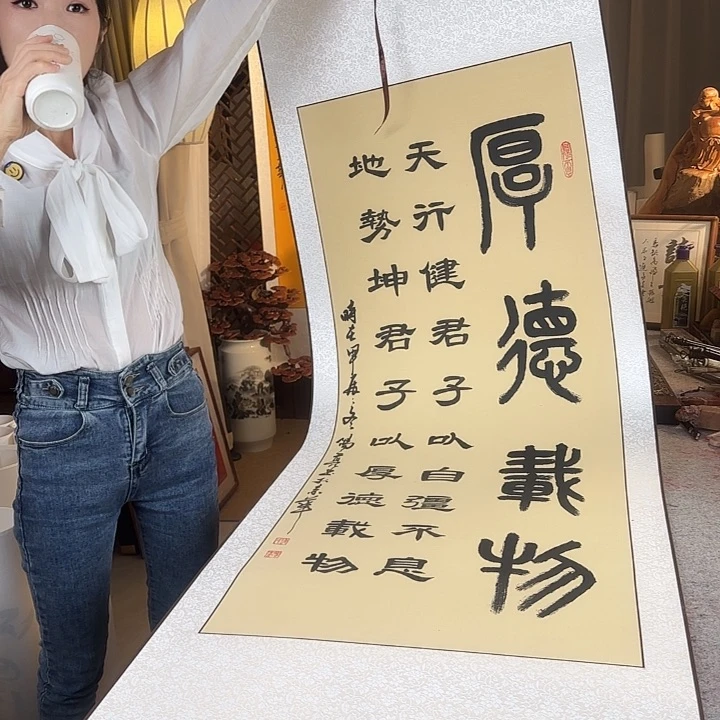 厚德載物
天行健君子以自彊不息
地勢坤君子以厚德載物
時在甲辰